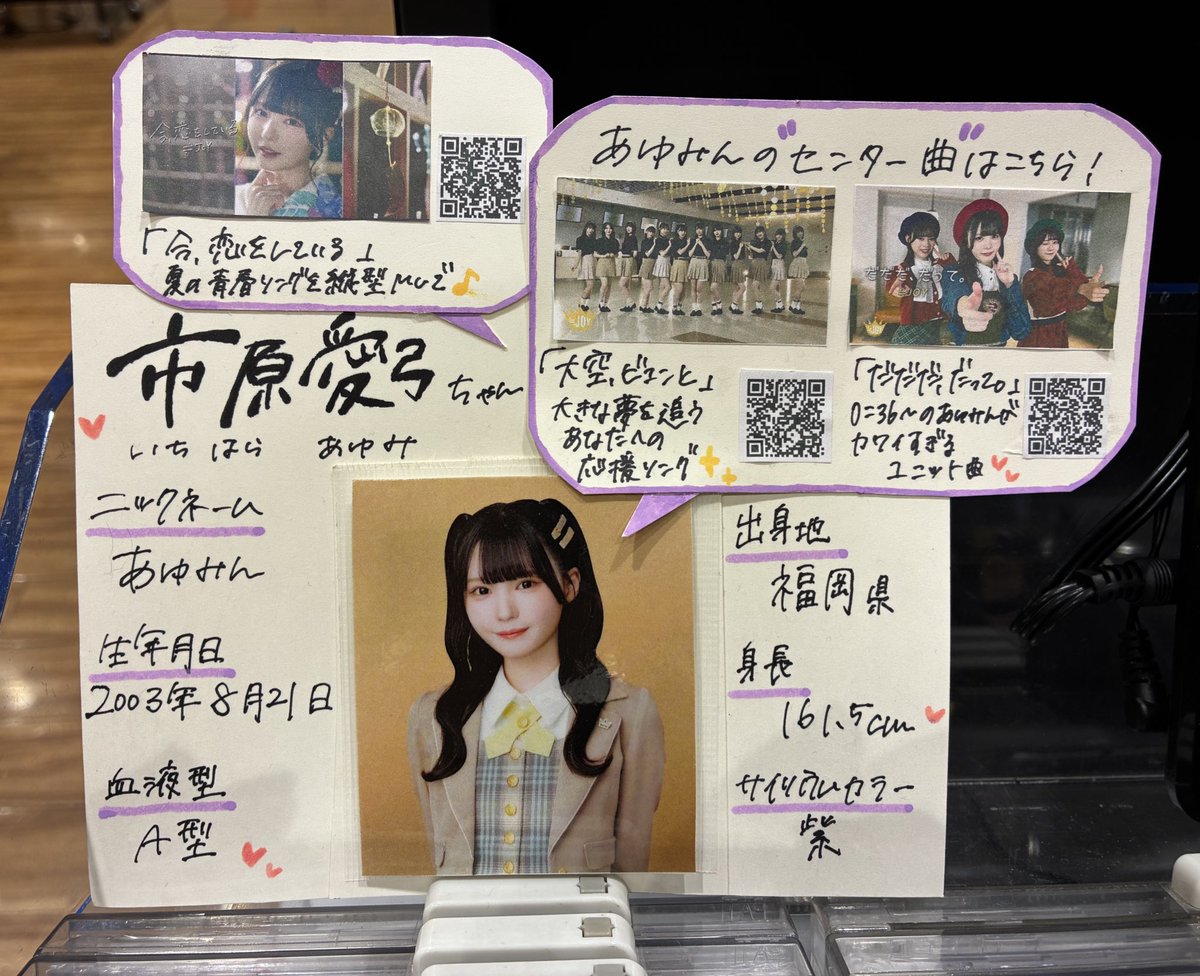 今、恋をしている
≒JOY
「今、恋をしている」
夏の青春ソングを縦型MVで♪
あゆみんのセンター曲はこちら!
≒JOY
「大空、ビュンと」
大きな夢を追う
あなたへの
応援ソング
だだだ、だって。
≒JOY
「だだだ、だって。」
0:36〜のあゆみんが
カワイすぎる
ユニット曲
市原愛弓ちゃん
いちはら あゆみ
ニックネーム
あゆみん
生年月日
2003年8月21日
血液型
A型
出身地
福岡県
身長
161.5cm
サイリウムカラー
紫